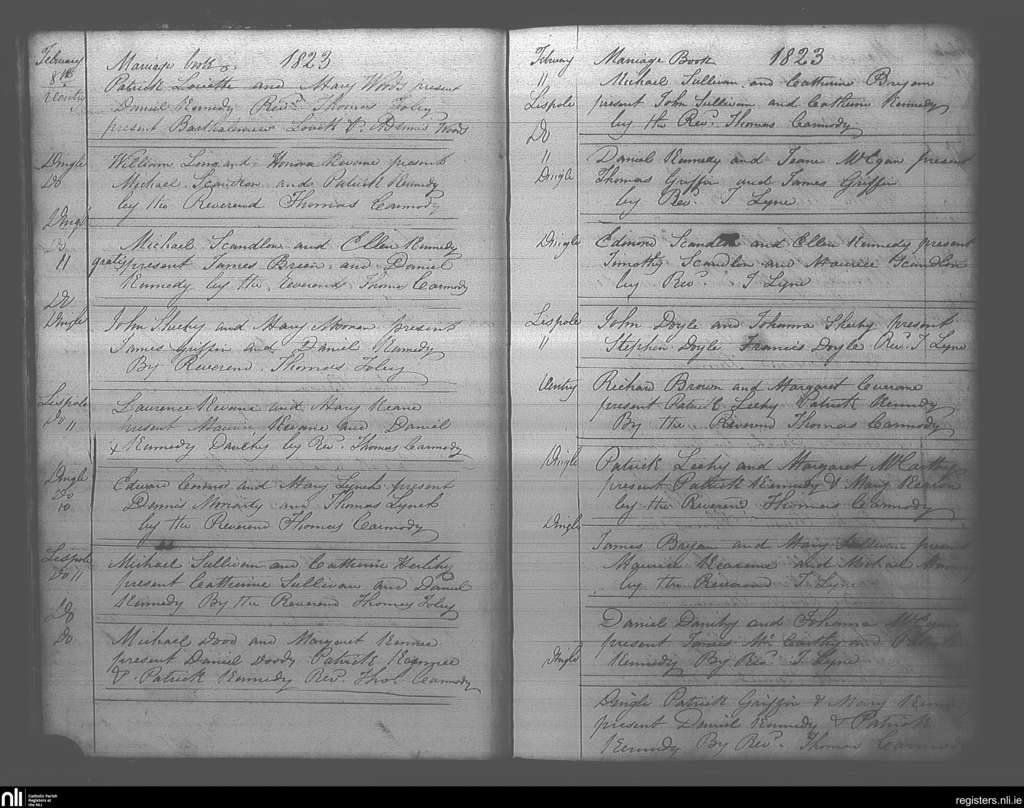 February Marriage book 1823
8th Patrick Lovette and Mary Woods present
Daniel Kennedy Revd. Thomas Foley
present Bartholomew Lovett & Dennis Woods
Dingle William Long and Honora Kevane present
Do Michael Scandlon and Patrick Kennedy
by the Reverend Thomas Carmody
Dingle
Michael Scandlon and Ellen Kennedy
11 gratis present James Breen and Daniel
Kennedy by the Reverend Thomas Carmody
Do
Dingle John Sheehy and Mary Moran present
James Griffin and Daniel Kennedy
By Reverend Thomas Foley
Lispole Laurence Kevane and Mary Keane
Do 11 present Maurice Kevane and Daniel
Kennedy by Rev. Thomas Carmody
Dingle Edward Connor and Mary Lynch present
Do Dennis Moriarty and Thomas Lynch
10 by the Reverend Thomas Carmody
Lispole Michael Sullivan and Catherine Herlihy
Do 11 present Catherine Sullivan and Daniel
Do Kennedy By the Reverend Thomas Foley
Do Michael Dood and Margaret
present Daniel Doody Patrick
& Patrick Kennedy Rev. Thos. Carmody
February Marriage Book 1823
11 Michael Sullivan and Catherine Bryan
Lispole present John Sullivan and Catherine Kennedy
by the Revd. Thomas Carmody
Do
11 Daniel Kennedy and Jeane McEgan present
Dingle Thomas Griffin and James Griffin
by Revd. T Lyne
Dingle Edmond Scandlon and Ellen Kennedy present
Timothy Scandlon and Maurice Scandlon
by Revd. T Lyne
Lispole John Doyle and Johanna Sheehy present
11 Stephen Doyle Francis Doyle Revd. T Lyne
Ventry Richard Brown and Margaret Currane
present Patrick Leehy Patrick Kennedy
By the Reverend Thomas Carmody
Dingle Patrick Leehy and Margaret McCarthy
present Patrick Kennedy & Mary
by the Reverend Thomas Carmody
Dingle
James Bryan and Mary Sullivan present
Maurice and Michael
by the Reverend T Lyne
Daniel and Johanna
present James McCarthy and
Dingle Kennedy By Revd. T Lyne
Dingle Patrick Griffin & Mary
present Daniel Kennedy & Patrick
Kennedy By Revd. Thomas Carmody
nli Catholic Parish
Registers at
the NLI
registers.nli.ie